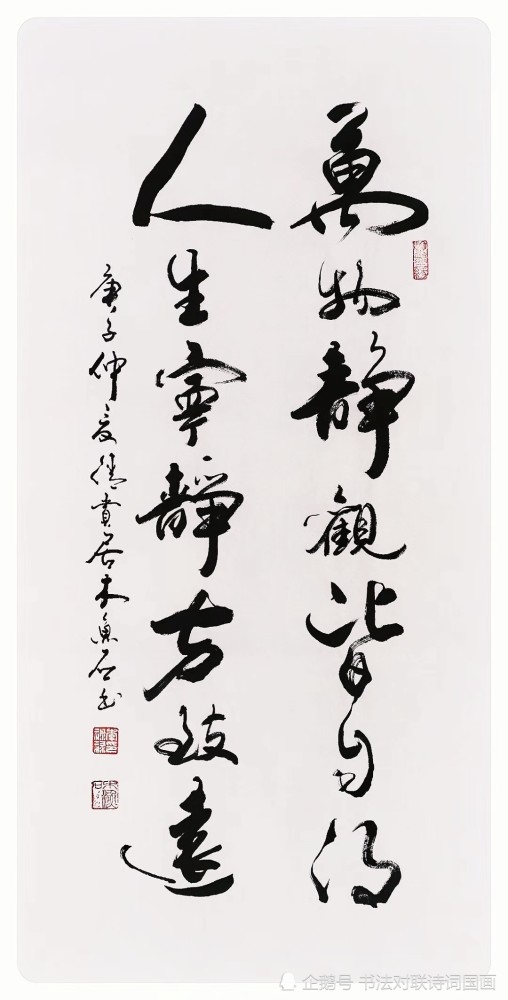 萬物靜觀皆自得
人生寧靜方致遠
庚子仲夏德貴居木魚石书
企鹅号 书法对联诗词国画